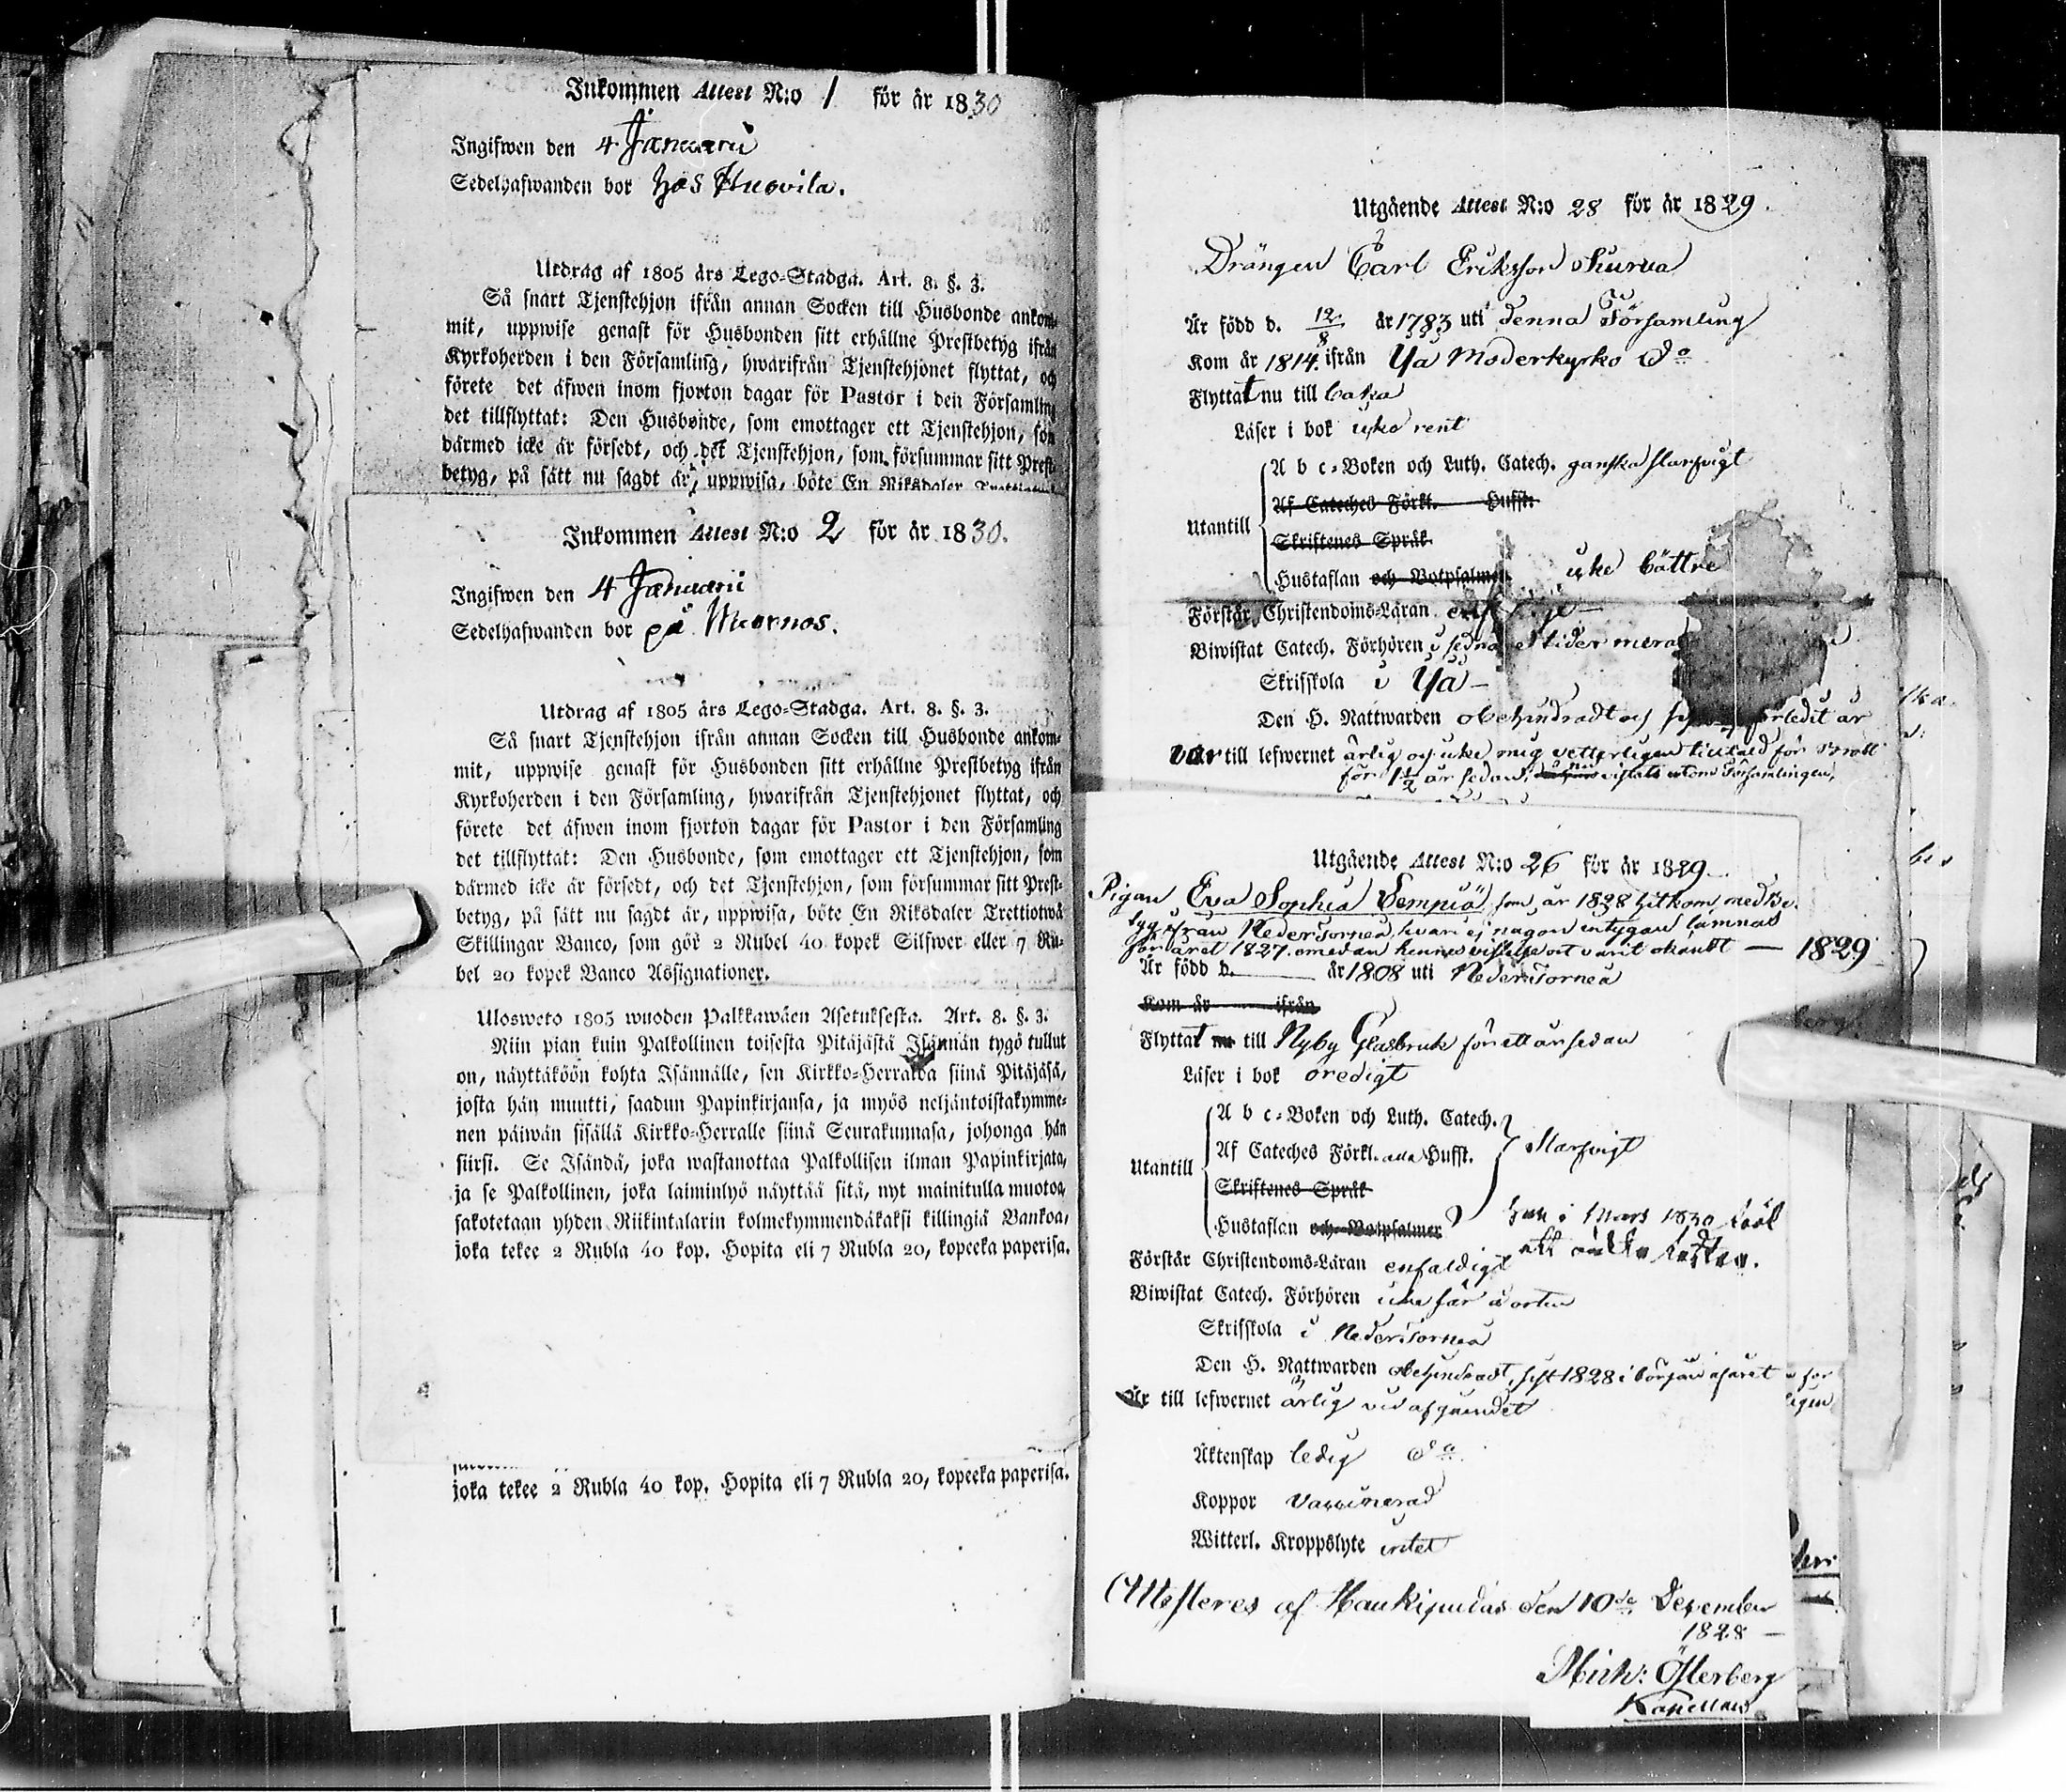 Inkommen Attest N:o 1 för år 1830
Ingifwen den 4 Januarii
Sedelhafwanden bor hos Huovila.
Utdrag af 1805 års Lego-Stadga. Art. 8. §. 3.
Så snart Tjenstehjon ifrån annan Socken till Husbonde ankom-
mit, uppwise genast för Husbonden sitt erhållne Prestbetyg ifrån
Kyrkoherden i den Församling, hwarifrån Tjenstehjonet flyttat, och
förete det äfwen inom fjorton dagar för Pastor i den Församling
det tillflyttat: Den Husbonde, som emottager ett Tjenstehjon, som
därmed icke är försedt, och det Tjenstehjon, som försummar sitt Prest-
betyg, på sätt nu sagdt är, uppwisa, böte En Riksdaler
Inkommen Attest N:o 2 för år 1830.
Ingifwen den 4 Januarii
Sedelhafwanden bor på
Utdrag af 1805 års Lego-Stadga. Art. 8. §. 3.
Så snart Tjenstehjon ifrån annan Socken till Husbonde ankom-
mit, uppwise genast för Husbonden sitt erhållne Prestbetyg ifrån
Kyrkoherden i den Församling, hwarifrån Tjenstehjonet flyttat, och
förete det äfwen inom fjorton dagar för Pastor i den Församling
det tillflyttat: Den Husbonde, som emottager ett Tjenstehjon, som
därmed icke är försedt, och det Tjenstehjon, som försummar sitt Prest-
betyg, på sätt nu sagdt är, uppwisa, böte En Riksdaler Trettiotwå
Skillingar Banco, som gör 2 Rubel 40 kopek Silfwer eller 7 Ru-
bel 20 kopek Banco Assignationer.
Ulosweto 1805 wuoden Palkkawäen Asetuksesta. Art. 8. §. 3.
Niin pian kuin Palkollinen toisesta Pitäjästä Isännän tygö tullut
on, näyttäköön kohta Isännälle, sen Kirkko-Herralda siinä Pitäjäsä,
josta hän muutti, saadun Papinkirjansa, ja myös neljäntoistakymme-
nen päiwän sisällä Kirkko-Herralle siinä Seurakunnasa, johonga hän
siirsi. Se Isändä, joka wastanottaa Palkollisen ilman Papinkirjata,
ja se Palkollinen, joka laiminlyö näyttää sitä, nyt mainitulla muotoa,
sakotetaan yhden Riikintalarin kolmekymmendäkaksi killingiä Bankoa,
joka tekee 2 Rubla 40 kop. Hopita eli 7 Rubla 20, kopeeka paperisa.
joka tekee 2 Rubla 40 kop. Hopita eli 7 Rubla 20, kopeeka paperisa.
Utgående Attest N:o 28 för år 1829
Drängen Carl Eriksson
Är född d. 12/8 år 1783 uti denna Församling
Kom år 1814 ifrån Ya Moderkyrko do
Flyttat nu till baka
Läser i bok icke rent
A b c-Boken och Luth. Catech. ganska slarfvigt
Af Cateches Förkl. Hufst.
Skriftenes Språk
Utantill
Hustaflan och Botpsalmer icke bättre
Förstår Christendoms-Läran
Biwistat Catech. Förhören i sednare tider mera
Skrifskola i Ya
Den H. Nattwarden obehindradt och förledit år
var till lefwernet ärlig och icke mig vetterligen tilltald för brott
för 1 1/2 år sedan, vistats utom Församlingen,
Utgående Attest N:o 26 för år 1829
Pigan Eva Sophia Sempiö som år 1828 hitkom med Be-
tyg ifrån NederTorneå, hvari ej någon intygan lämnas
för året 1827. emedan hennes vistelseort varit okändt — 1829
Är född d. år 1808 uti NederTorneå
Kom år ifrån
Flyttat nu till Nyby Glasbruk för ett år sedan
Läser i bok oredigt
A b c-Boken och Luth. Catech.
Af Cateches Förkl. alla Hufst. Slarfvigt
Utantill
Skriftenes Språk
Hustaflan och Botpsalmer
i Mars 1830
Förstår Christendoms-Läran enfaldigt
Biwistat Catech. Förhören icke här å orten
Skrifskola i NederTorneå
Den H. Nattwarden obehindradt, sist 1828 i början af året
Är till lefwernet ärlig vid afgåendet
Äktenskap ledig do
Koppor Vaccinerad
Witterl. Kroppslyte intet
Attesteres af Haukipudas den 10de December
1828
Mich: Österberg
Kapellan